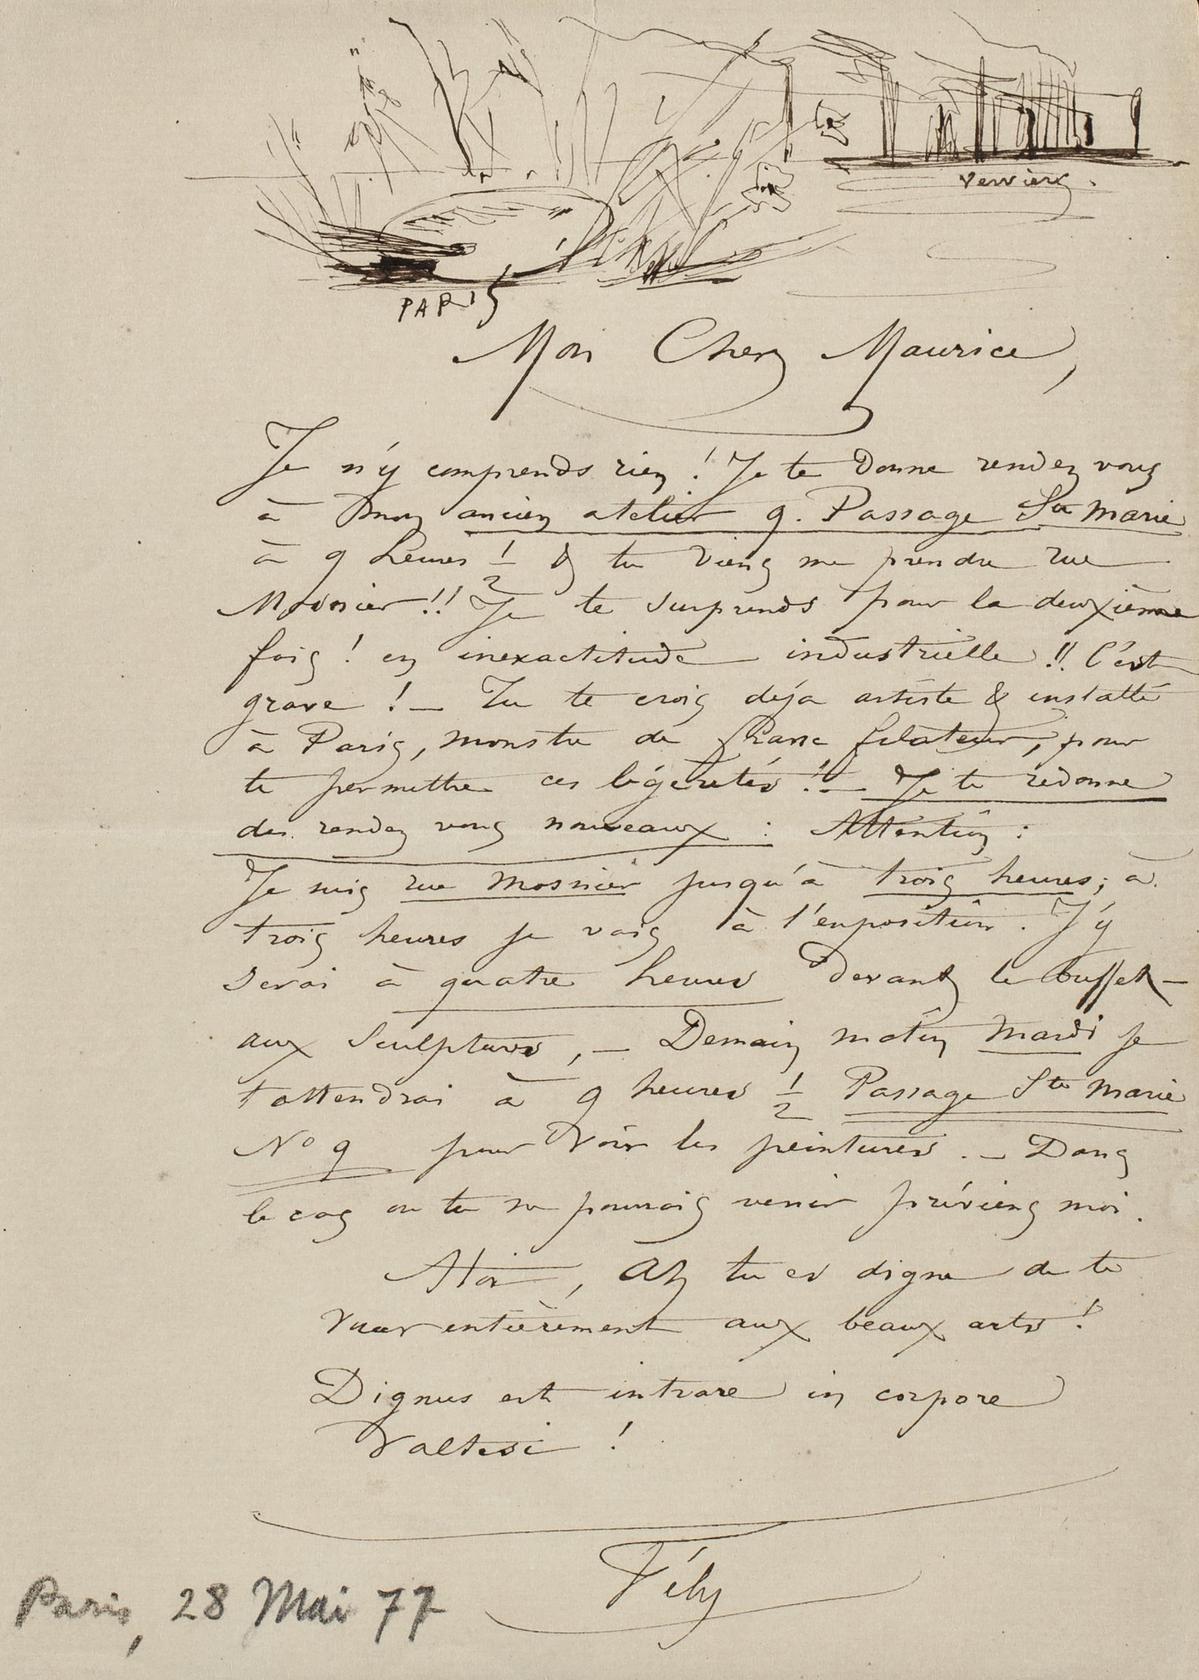 Verviers.
PARIS
Mon Cher Maurice,
Je n'y comprends rien ! Je te donne rendez vous
à mon ancien atelier 9. Passage Sta Marie
à 9 heures 1/2 & tu viens me prendre rue
Mosnier !! Je te surprends pour la deuxième
fois ! en inexactitude industrielle !! C'est
grave ! – Tu te crois déja artiste & installé
à Paris, monstre de franc filateur, pour
te permettre ces légèretés !! – Je te redonne
des rendez vous nouveaux : Attention :
Je suis rue Mosnier jusqu'à trois heures ; à
trois heures je vais à l'exposition. J'y
serai à quatre heures devant le buffet –
aux Sculptures, – Demain matin Mardi je
t'attendrai à 9 heures 1/2 Passage Ste Marie
No 9 pour voir les peintures. – Dans
le cas ou tu ne pourrais venir préviens moi.
Ah tu es digne de te
vouer entièrement aux beaux arts !
Dignus est intrare in corpore
Valtesi !
Fély
Paris, 28 Mai 77